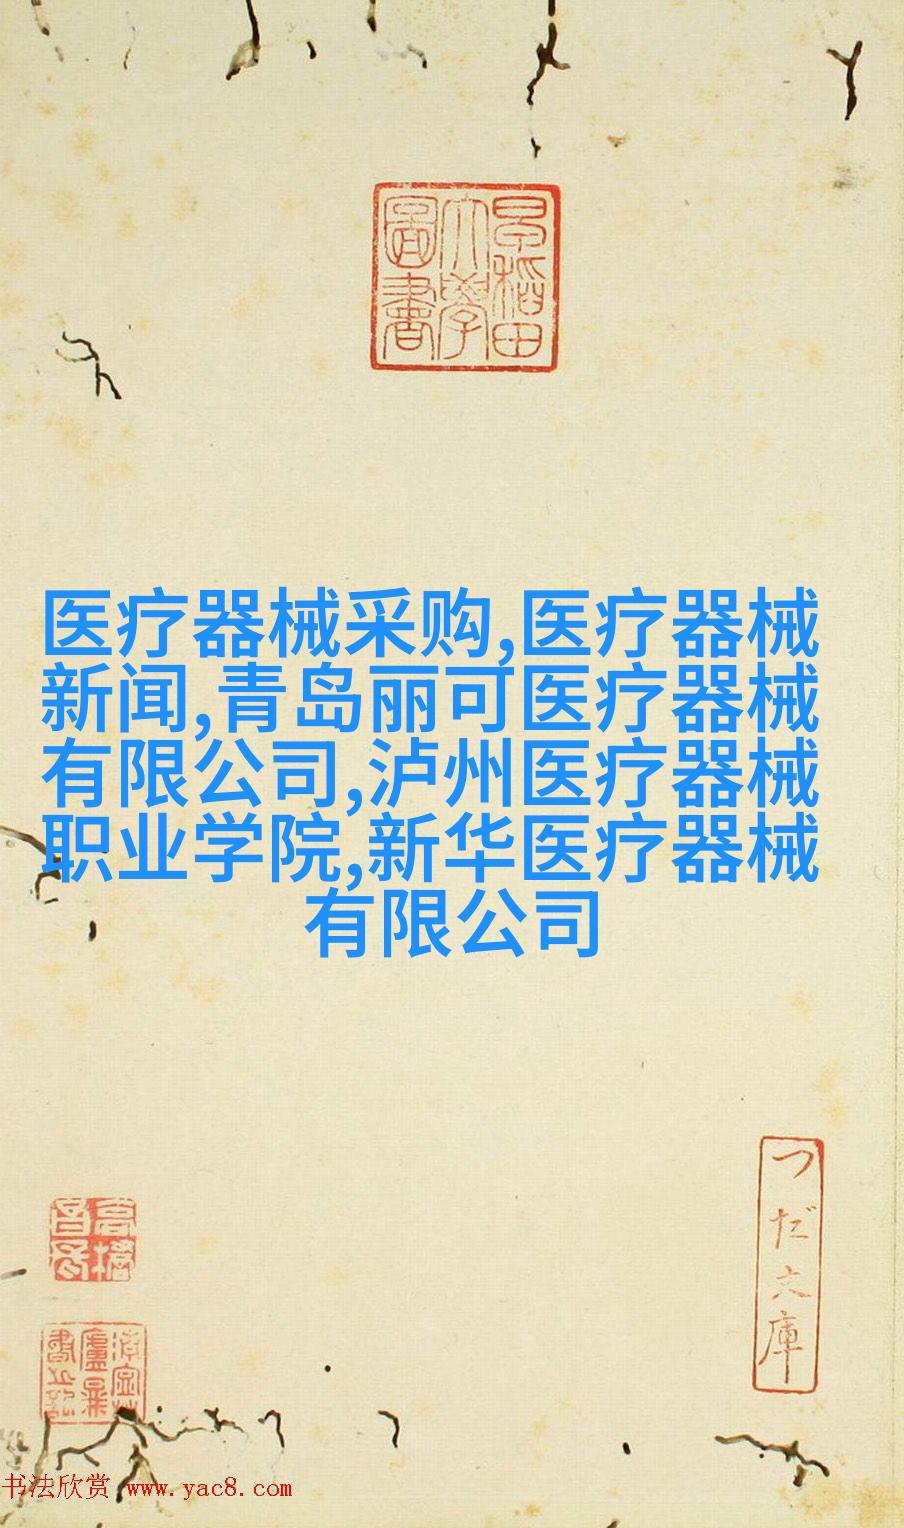 早稻田
大學
圖書
医疗器械采购,医疗器械
新闻,青岛丽可医疗器械
有限公司,泸州医疗器械
职业学院,新华医疗器械
有限公司
つだ文庫
书法欣赏 www.yac8.com